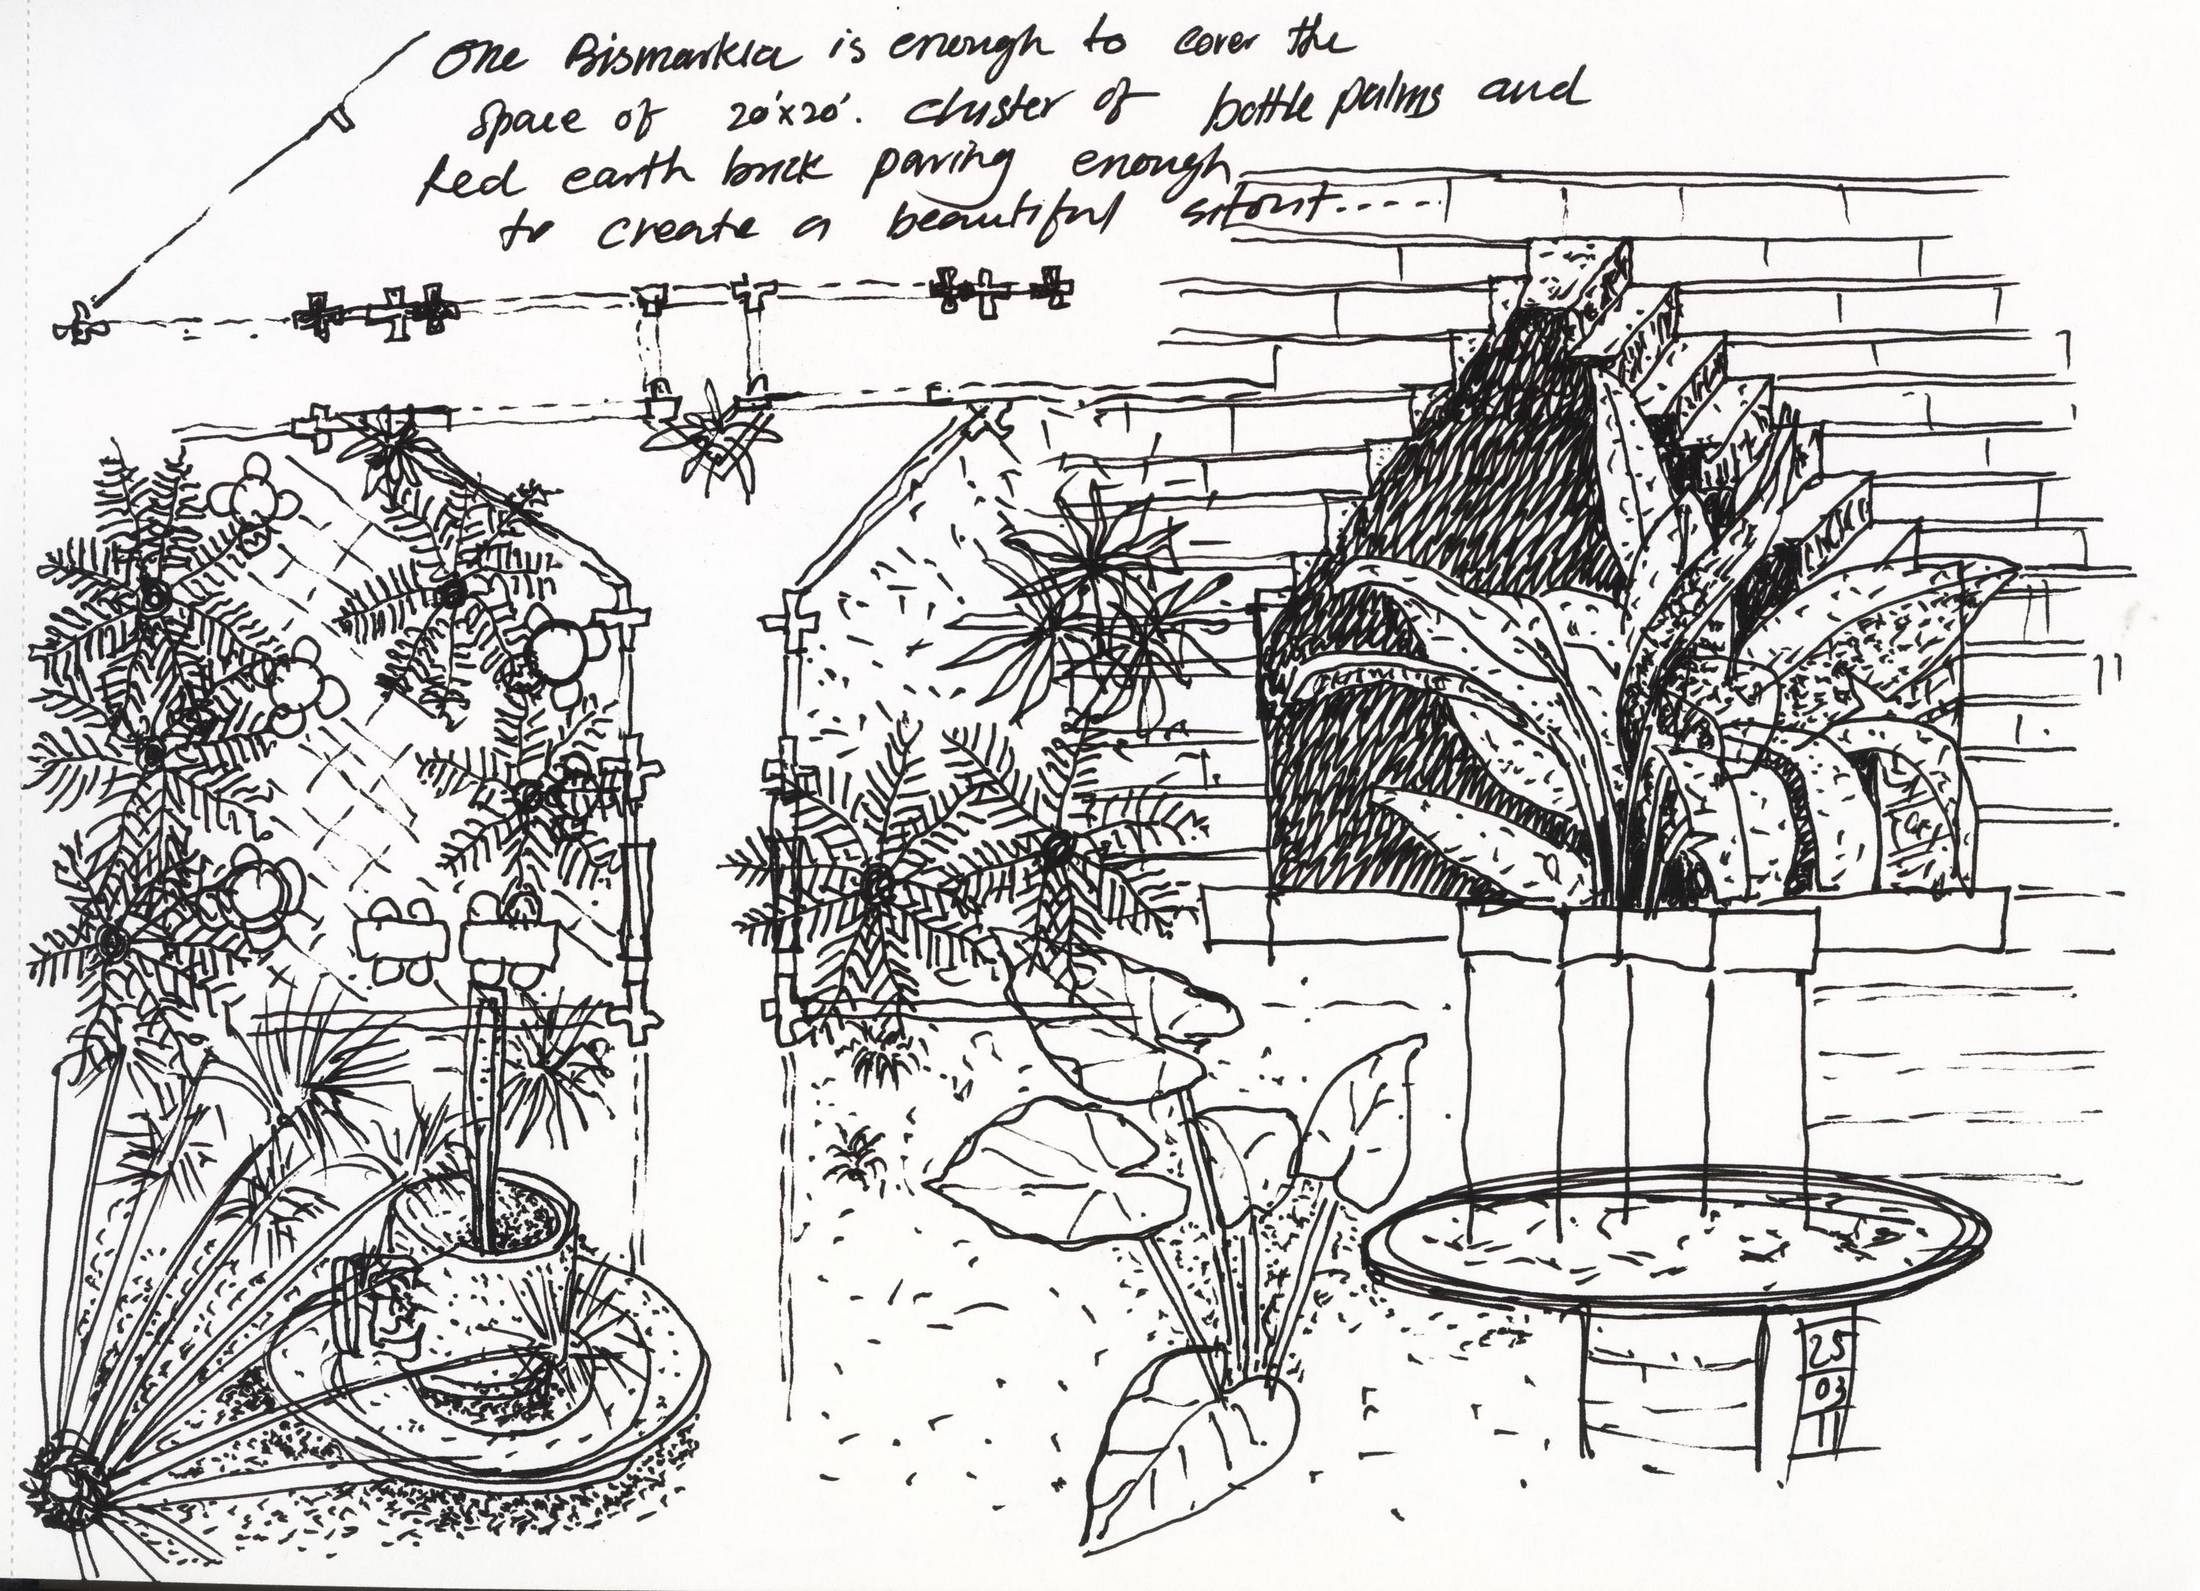 One Bismarkia is enough to cover the
space of 20'x20'. cluster of bottle palms and
Red earth brick paving enough
to create a beautiful sitout-----
25
03
11